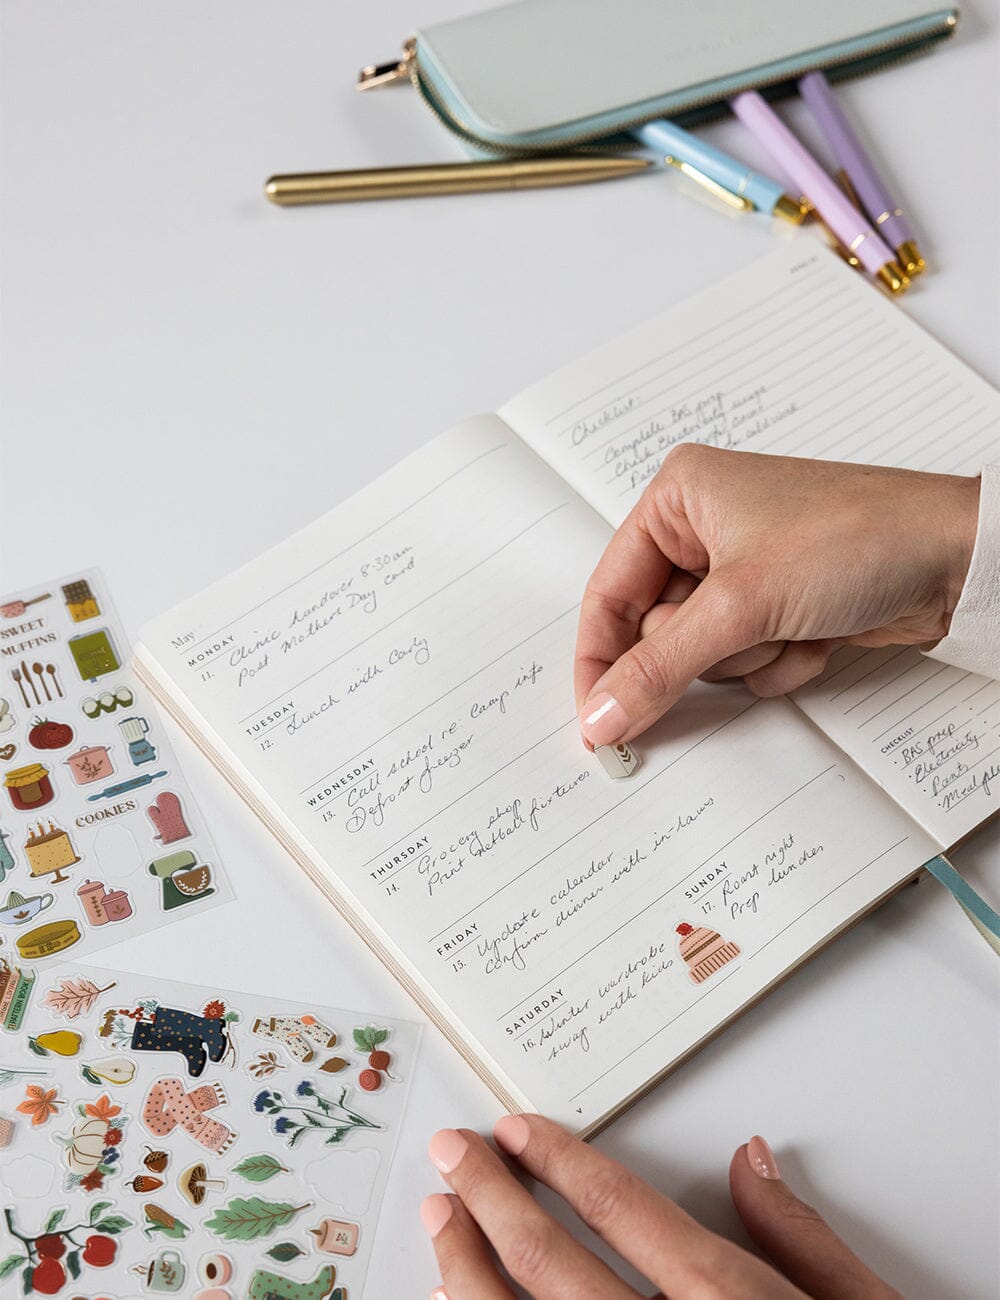 Checklist:
Complete BAS prep
Check Electricity usage
May
MONDAY
11.
Clinic handover 8:30am
Post Mothers Day card
TUESDAY
12.
Lunch with Carly
WEDNESDAY
13.
Call school re: Camp info
Defrost freezer
THURSDAY
14.
Grocery shop
Print netball fixtures
FRIDAY
15.
Update calendar
Confirm dinner with in-laws
SATURDAY
16.
Winter wardrobe
swap with kids
SUNDAY
17.
Roast night
Prep lunches
CHECKLIST
· BAS prep
· Electricity
· Pants
· Meal
SWEET
MUFFINS
COOKIES
PATTERN BOOK